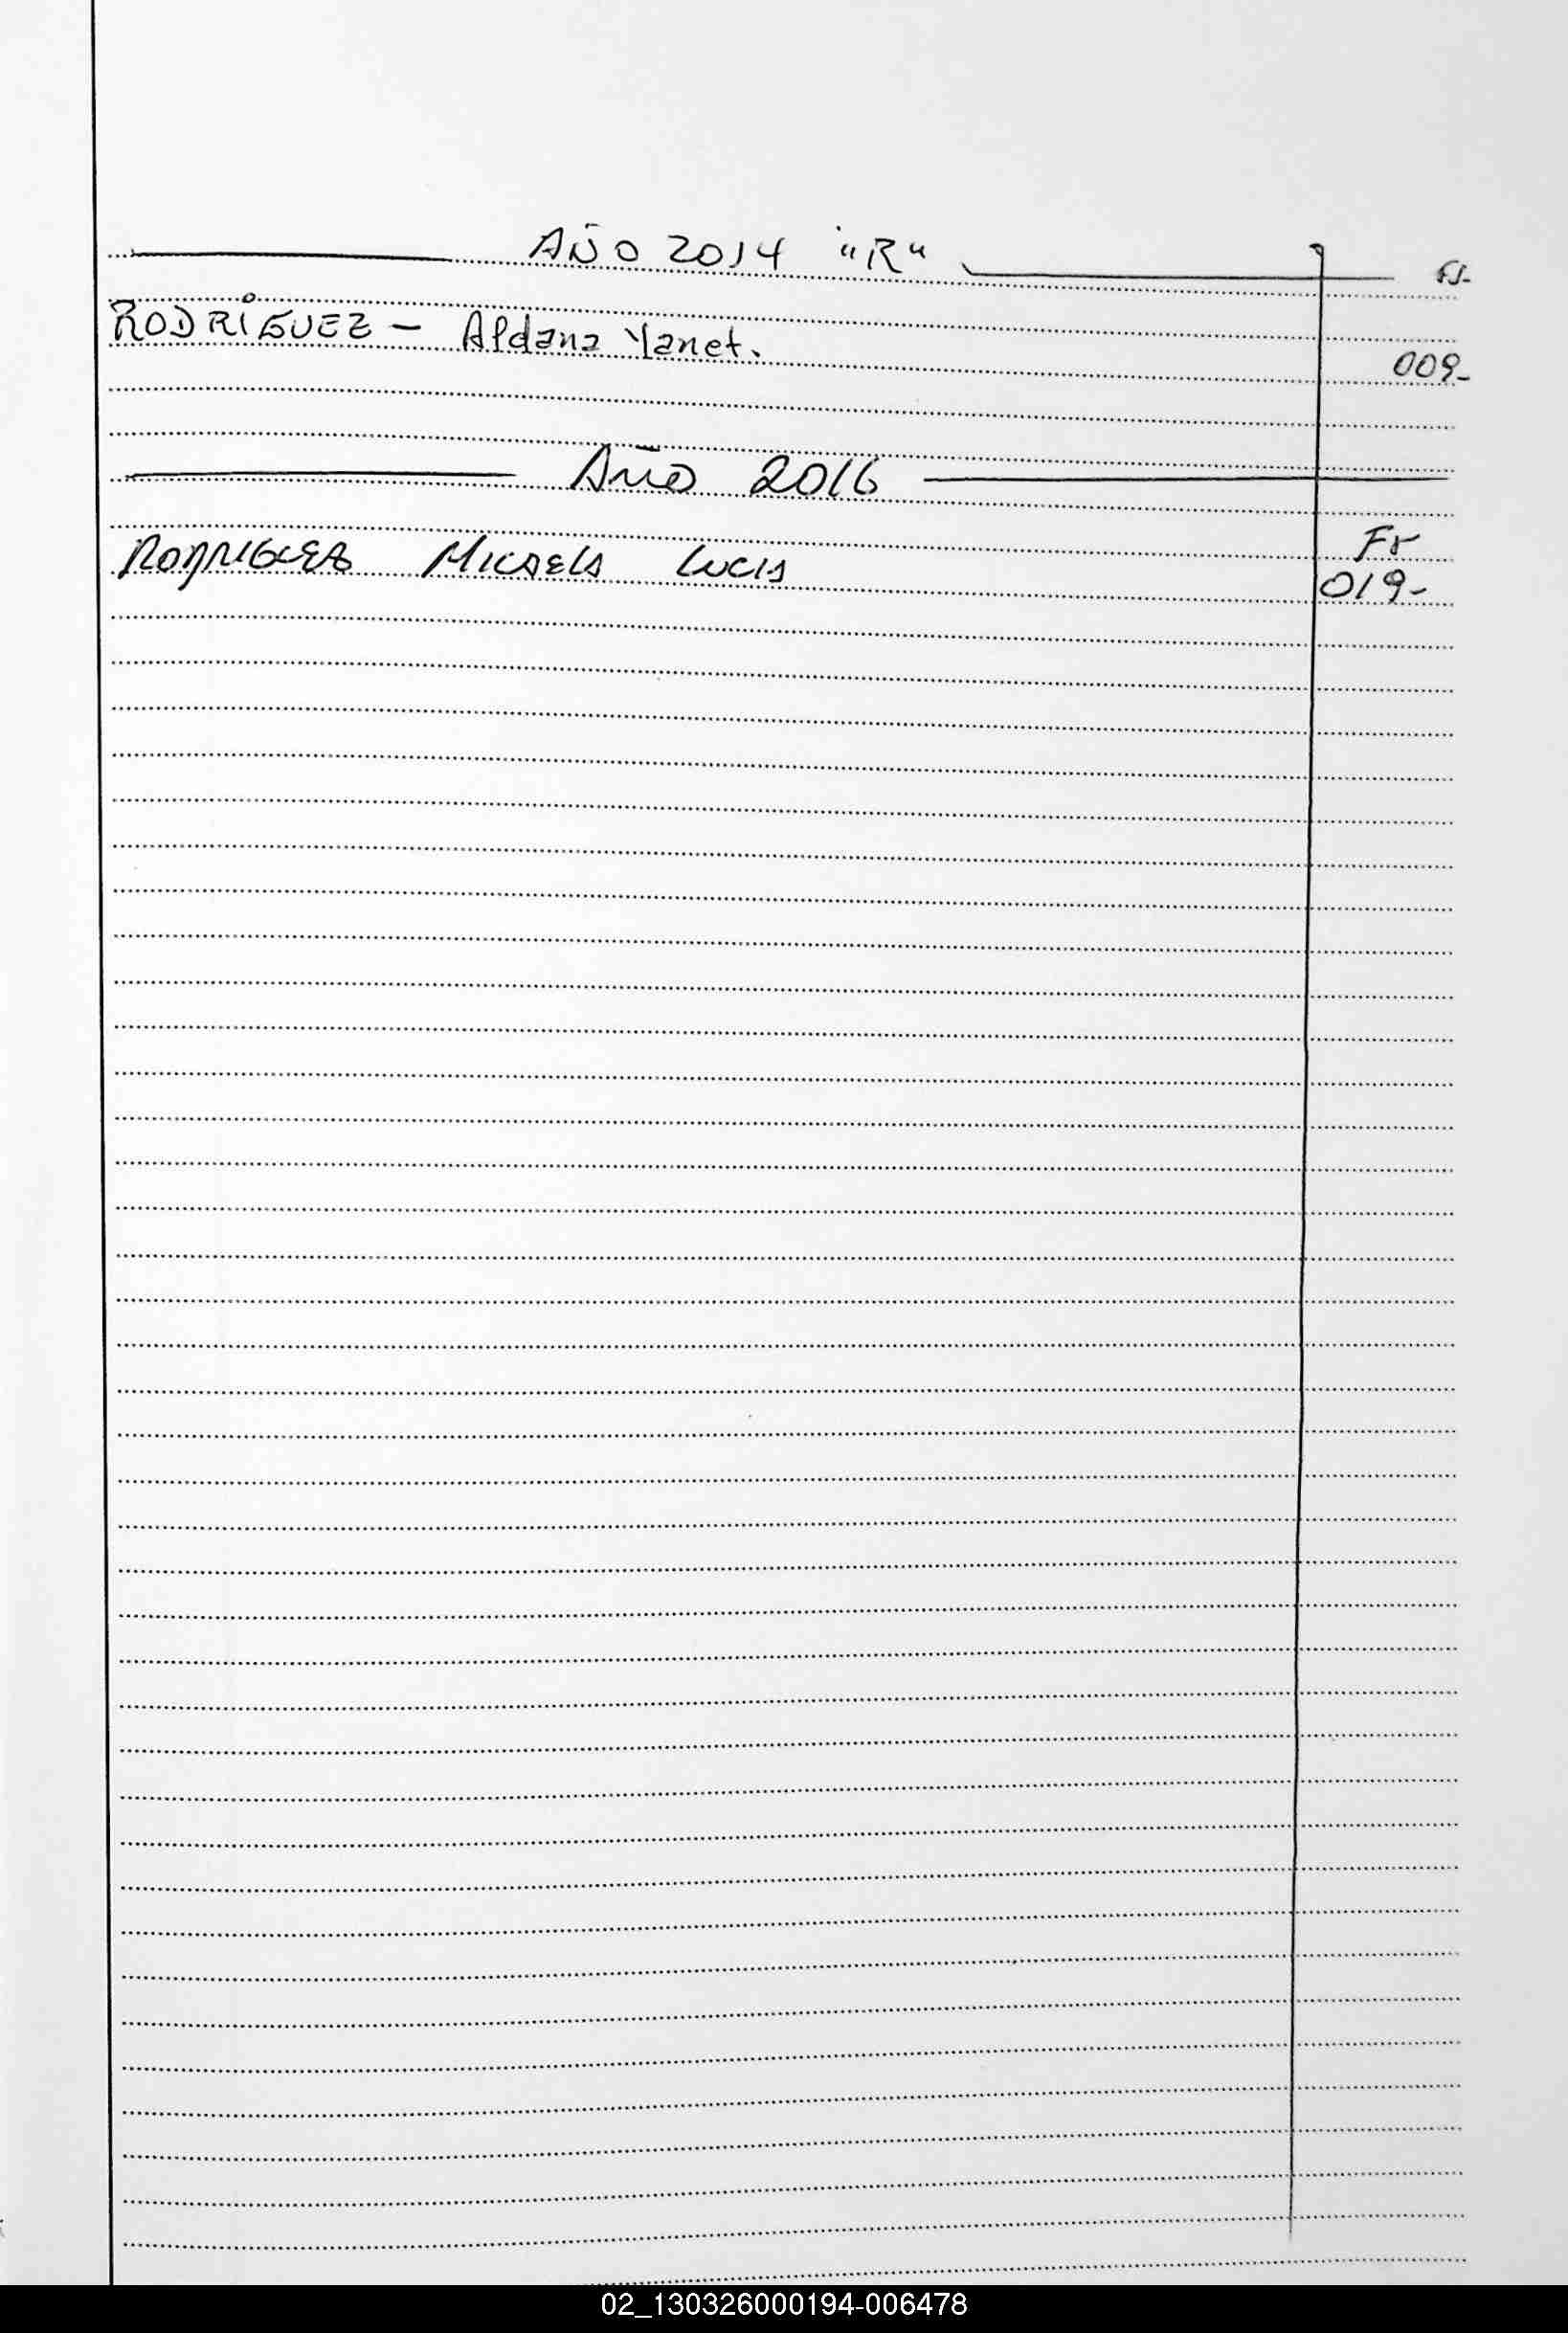 AÑO 2014 "R" fs-
RODRÍGUEZ - Aldana Yanet. 009-
Año 2016
Fs
RODRIGUEZ Micaela Lucia 019-
02_130326000194-006478